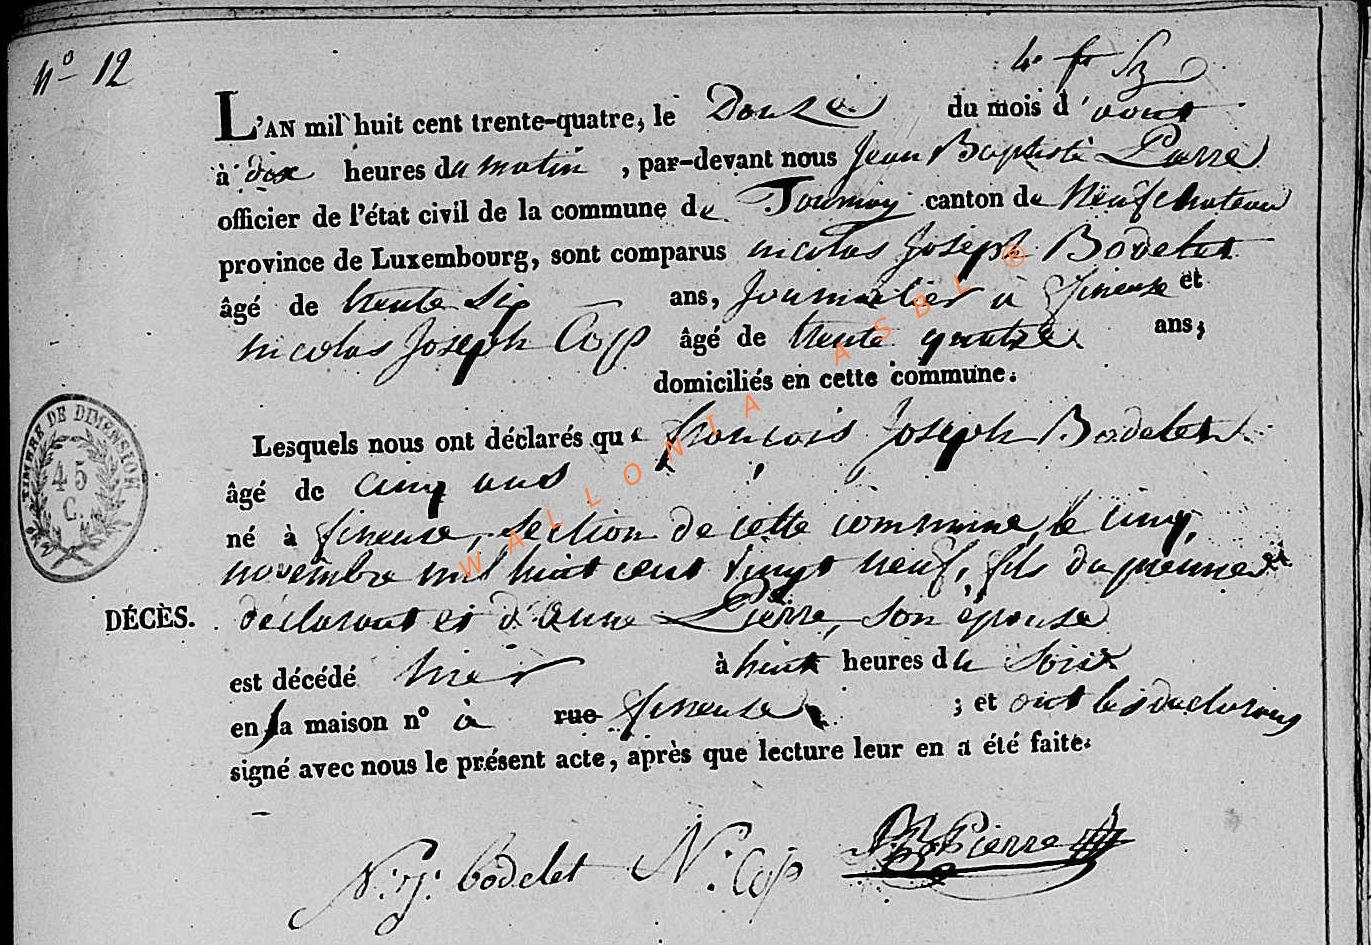 n° 12
L'AN mil huit cent trente-quatre, le Douze du mois d'aout
à dix heures du matin, par-devant nous Jean Baptiste Pierre
officier de l'état civil de la commune de Tournay canton de Neufchateau
province de Luxembourg, sont comparus nicolas Joseph Bodelet
âgé de trente Six ans, Journalier à fineuse et
nicolas Joseph Cop âgé de trente quatre ans;
domiciliés en cette commune.
Lesquels nous ont déclarés que francois Joseph Bodelet
âgé de cinq ans
né à fineuse, section de cette commune, le cinq
novembre mil huit cent vingt neuf, fils du premier
DÉCÈS. déclarant et d'anne Pierre, son épouse
est décédé hier à huit heures du soir
en sa maison n° à rue fineuse; et ont les declarans
signé avec nous le présent acte, après que lecture leur en a été faite.
N: j: bodelet N: Cop JB Pierre
TIMBRE DE DIMENSION
45
C.
WALLONIA ASBL ®